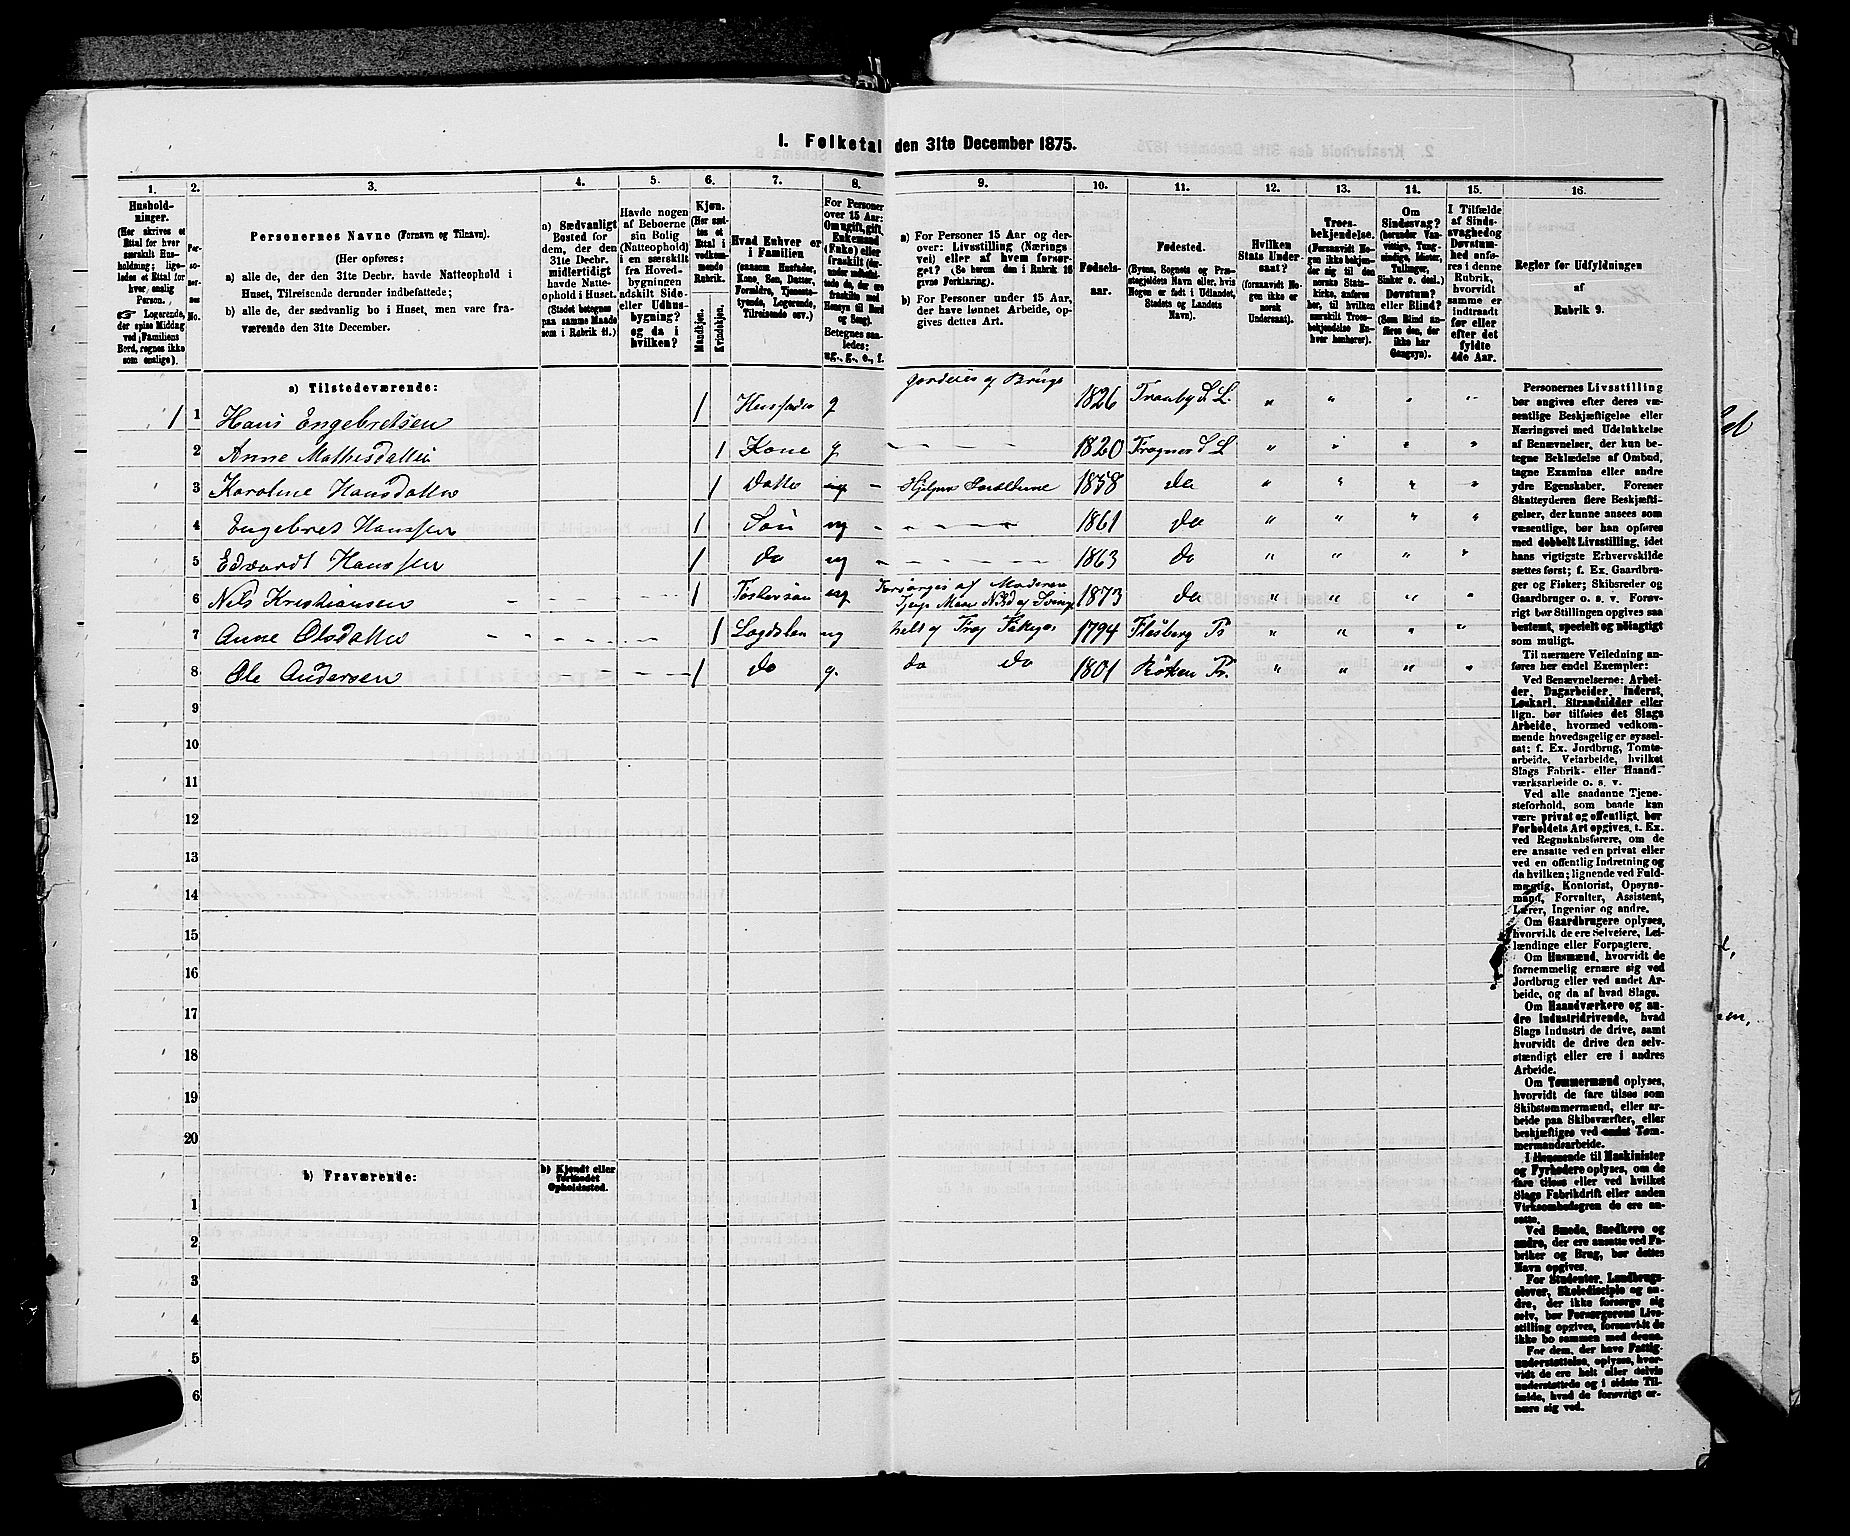 I. Folketal den 31te December 1875.
1. 2. 3. 4. 5. 6. 7. 8. 9. 10. 11. 12. 13. 14. 15. 16.
Hushold-
ninger.
(Her skrives et
Ettal for hver
særskilt Hus-
holdning; lige-
ledes et Ettal for
hver enslig
Person.
☞ Logerende,
der spise Middag
ved Familiens
Bord, regnes ikke
som enslige).
Per-
so-
ner-
nes
No.
Personernes Navne (Fornavn og Tilnavn).
(Her opføres:
a) alle de, der den 31te Decbr. havde Natteophold i
Huset, Tilreisende derunder indbefattede;
b) alle de, der sædvanlig bo i Huset, men vare fra-
værende den 31te December.
a) Sædvanligt
Bosted for
dem, der den
31te Decbr.
midlertidigt
havde Natte-
ophold i Huset.
(Stedet betegnes
paa samme Maade
som i Rubrik 11.)
Havde nogen
af Beboerne
sin Bolig
(Natteophold)
i en særskilt
fra Hoved-
bygningen
adskilt Side-
eller Udhus-
bygning?
og da i
hvilken?
Kjøn.
(Her sæt-
tes et
Ettal i
vedkom-
mende
Rubrik.
Mandkjøn.
Kvindekjøn.
Hvad Enhver er
i Familien
(saasom Husfader,
Kone, Søn, Datter,
Forældre, Tjeneste-
tyende, Logerende,
Tilreisende osv.)
For Personer
over 15 Aar:
Om ugift, gift,
Enkemand
(Enke) eller
fraskilt (der-
under indbefat-
tede de, der ere
fraskilte med
Hensyn til Bord
og Seng).
Betegnes saa-
ledes:
ug., g., e., f.
a) For Personer 15 Aar og der-
over: Livsstilling (Nærings
vei) eller af hvem forsør-
get? (Se herom den i Rubrik 16
givne Forklaring).
b) For Personer under 15 Aar,
der have lønnet Arbeide, op-
gives dettes Art.
Fødsels-
aar.
Fødested.
(Byens, Sognets og Præ-
stegjeldets Navn eller, hvis
Nogen er født i Udlandet,
Stedets og Landets
Navn).
Hvilken
Stats Under-
saat?
(forsaavidt No-
gen ikke er
norsk
Undersaat).
Troes-
bekjendelse.
(Forsaavidt No-
gen ikke bekjen-
der sig til den
norske Stats-
kirke, anføres
her, til hvilken
særskilt Troes-
bekjendelse En-
hver henhører).
Om
Sindssvag?
(herunder Van-
vittige, Tung-
sindige, Idioter,
Tullinger,
Sinker o. desl.)
Døvstum?
eller Blind?
(Som Blind an-
føres den, der
ikke har
Gangsyn).
I Tilfælde
af Sinds-
svaghed og
Døvstum-
hed anfø-
res i denne
Rubrik,
hvorvidt
samme er
indtraadt
før eller
efter det
fyldte
4de Aar.
Regler for Udfyldningen
af
Rubrik 9.
a) Tilstedeværende:
Gardeier og Bruger
1 1 Hans Engebretsen 1 Husfader g 1826 Tranby S L. " " " "
2 Anne Mathisdatter 1 Kone g. 1820 Frogner S L " " " "
3 Karoline Hansdatter 1 Datter ug Hjelper Forældrene 1858 do " " " "
4 Engebret Hanssen 1 Søn ug 1861 do " " " "
5 Edvardt Hanssen 1 do ug 1863 do " " " "
6 Nils Kristiansen 1 Fostersøn ug Forsørges af Moderen 1873 do " " " "
7 Anne Olsdatter 1 Logdslem ug 1794 Flesberg Pr " " " "
8 Ole Andersen 1 do g. do do 1801 Røken Pr. " " " "
9
10
11
12
13
14
15
16
17
18
19
20
b) Fraværende:
b) Kjendt eller
formodet
Opholdssted.
1
2
3
4
5
6
Personernes Livsstilling
bør angives efter deres væ-
sentlige Beskjæftigelse eller
Næringsvei med Udelukkelse
af Benævnelser, der kun be-
tegne Beklædelse af Ombud,
tagne Examina eller andre
ydre Egenskaber. Forener
Skatteyderen flere Beskjæfti-
gelser, der kunne ansees som
væsentlige, bør han opføres
med dobbelt Livsstilling, idet
hans vigtigste Erhvervskilde
sættes først; f. Ex. Gaardbru-
ger og Fisker; Skibsreder og
Gaardbruger o. s. v. Forøv-
rigt bør Stillingen opgives saa
bestemt, specielt og nøiagtigt
som muligt.
Til nærmere Veiledning an-
føres her endel Exempler:
Ved Benævnelserne: Arbei-
der, Dagarbeider, Inderst,
Løskarl, Strandsidder eller
lign. bør tilføies det Slags
Arbeide, hvormed vedkom-
mende hovedsagelig er syssel-
sat; f. Ex. Jordbrug, Tomte-
arbeide, Veiarbeide, hvilket
Slags Fabrik- eller Haand-
værksarbeide o. s. v.
Ved alle saadanne Tjene-
steforhold, som baade kan
være privat og offentligt, bør
Forholdets Art opgives, t. Ex.
ved Regnskabsførere, om de
ere ansatte ved en privat eller
ved en offentlig Indretning og
da hvilken; lignende ved Fuld-
mægtig, Kontorist, Opsyns-
mand, Forvalter, Assistent,
Lærer, Ingeniør og andre.
Om Gaardbrugere oplyses,
hvorvidt de ere Selveiere, Lei-
lændinge eller Forpagtere.
Om Husmænd, hvorvidt de
fornemmelig ernære sig ved
Jordbrug eller ved andet Ar-
beide, og da af hvad Slags.
Om Haandværkere og an-
dre Industridrivende, hvad
Slags Industri de drive, samt
hvorvidt de drive den selv-
stændigt eller ere i andres
Arbeide.
Om Tømmermænd oplyses,
hvorvidt de fare tilsøs som
Skibstømmermænd, eller ar-
beide paa Skibsværfter, eller
beskjæftiges ved andet Tøm-
mermandsarbeide.
I Henseende til Maskinister
og Fyrbødere oplyses, om de
fare tilsøs eller ved hvilket
Slags Fabrikdrift eller anden
Virksomhedsgren de ere an-
satte.
Ved Smede, Snedkere og
andre, der ere ansatte ved Fa-
briker og Brug, bør dettes
Navn opgives.
For Studenter, Landbrugs-
elever, Skoledisciple og an-
dre, der ikke forsørge sig
selv, bør Forsørgerens Livs-
stilling opgives, forsaavidt de
ikke bo sammen med denne.
For dem, der have Fattig-
understøttelse, oplyses, hvor-
vidt de ere helt eller delvis
understøttede og i sidste Til-
fælde, hvad de forøvrigt er-
nære sig ved.